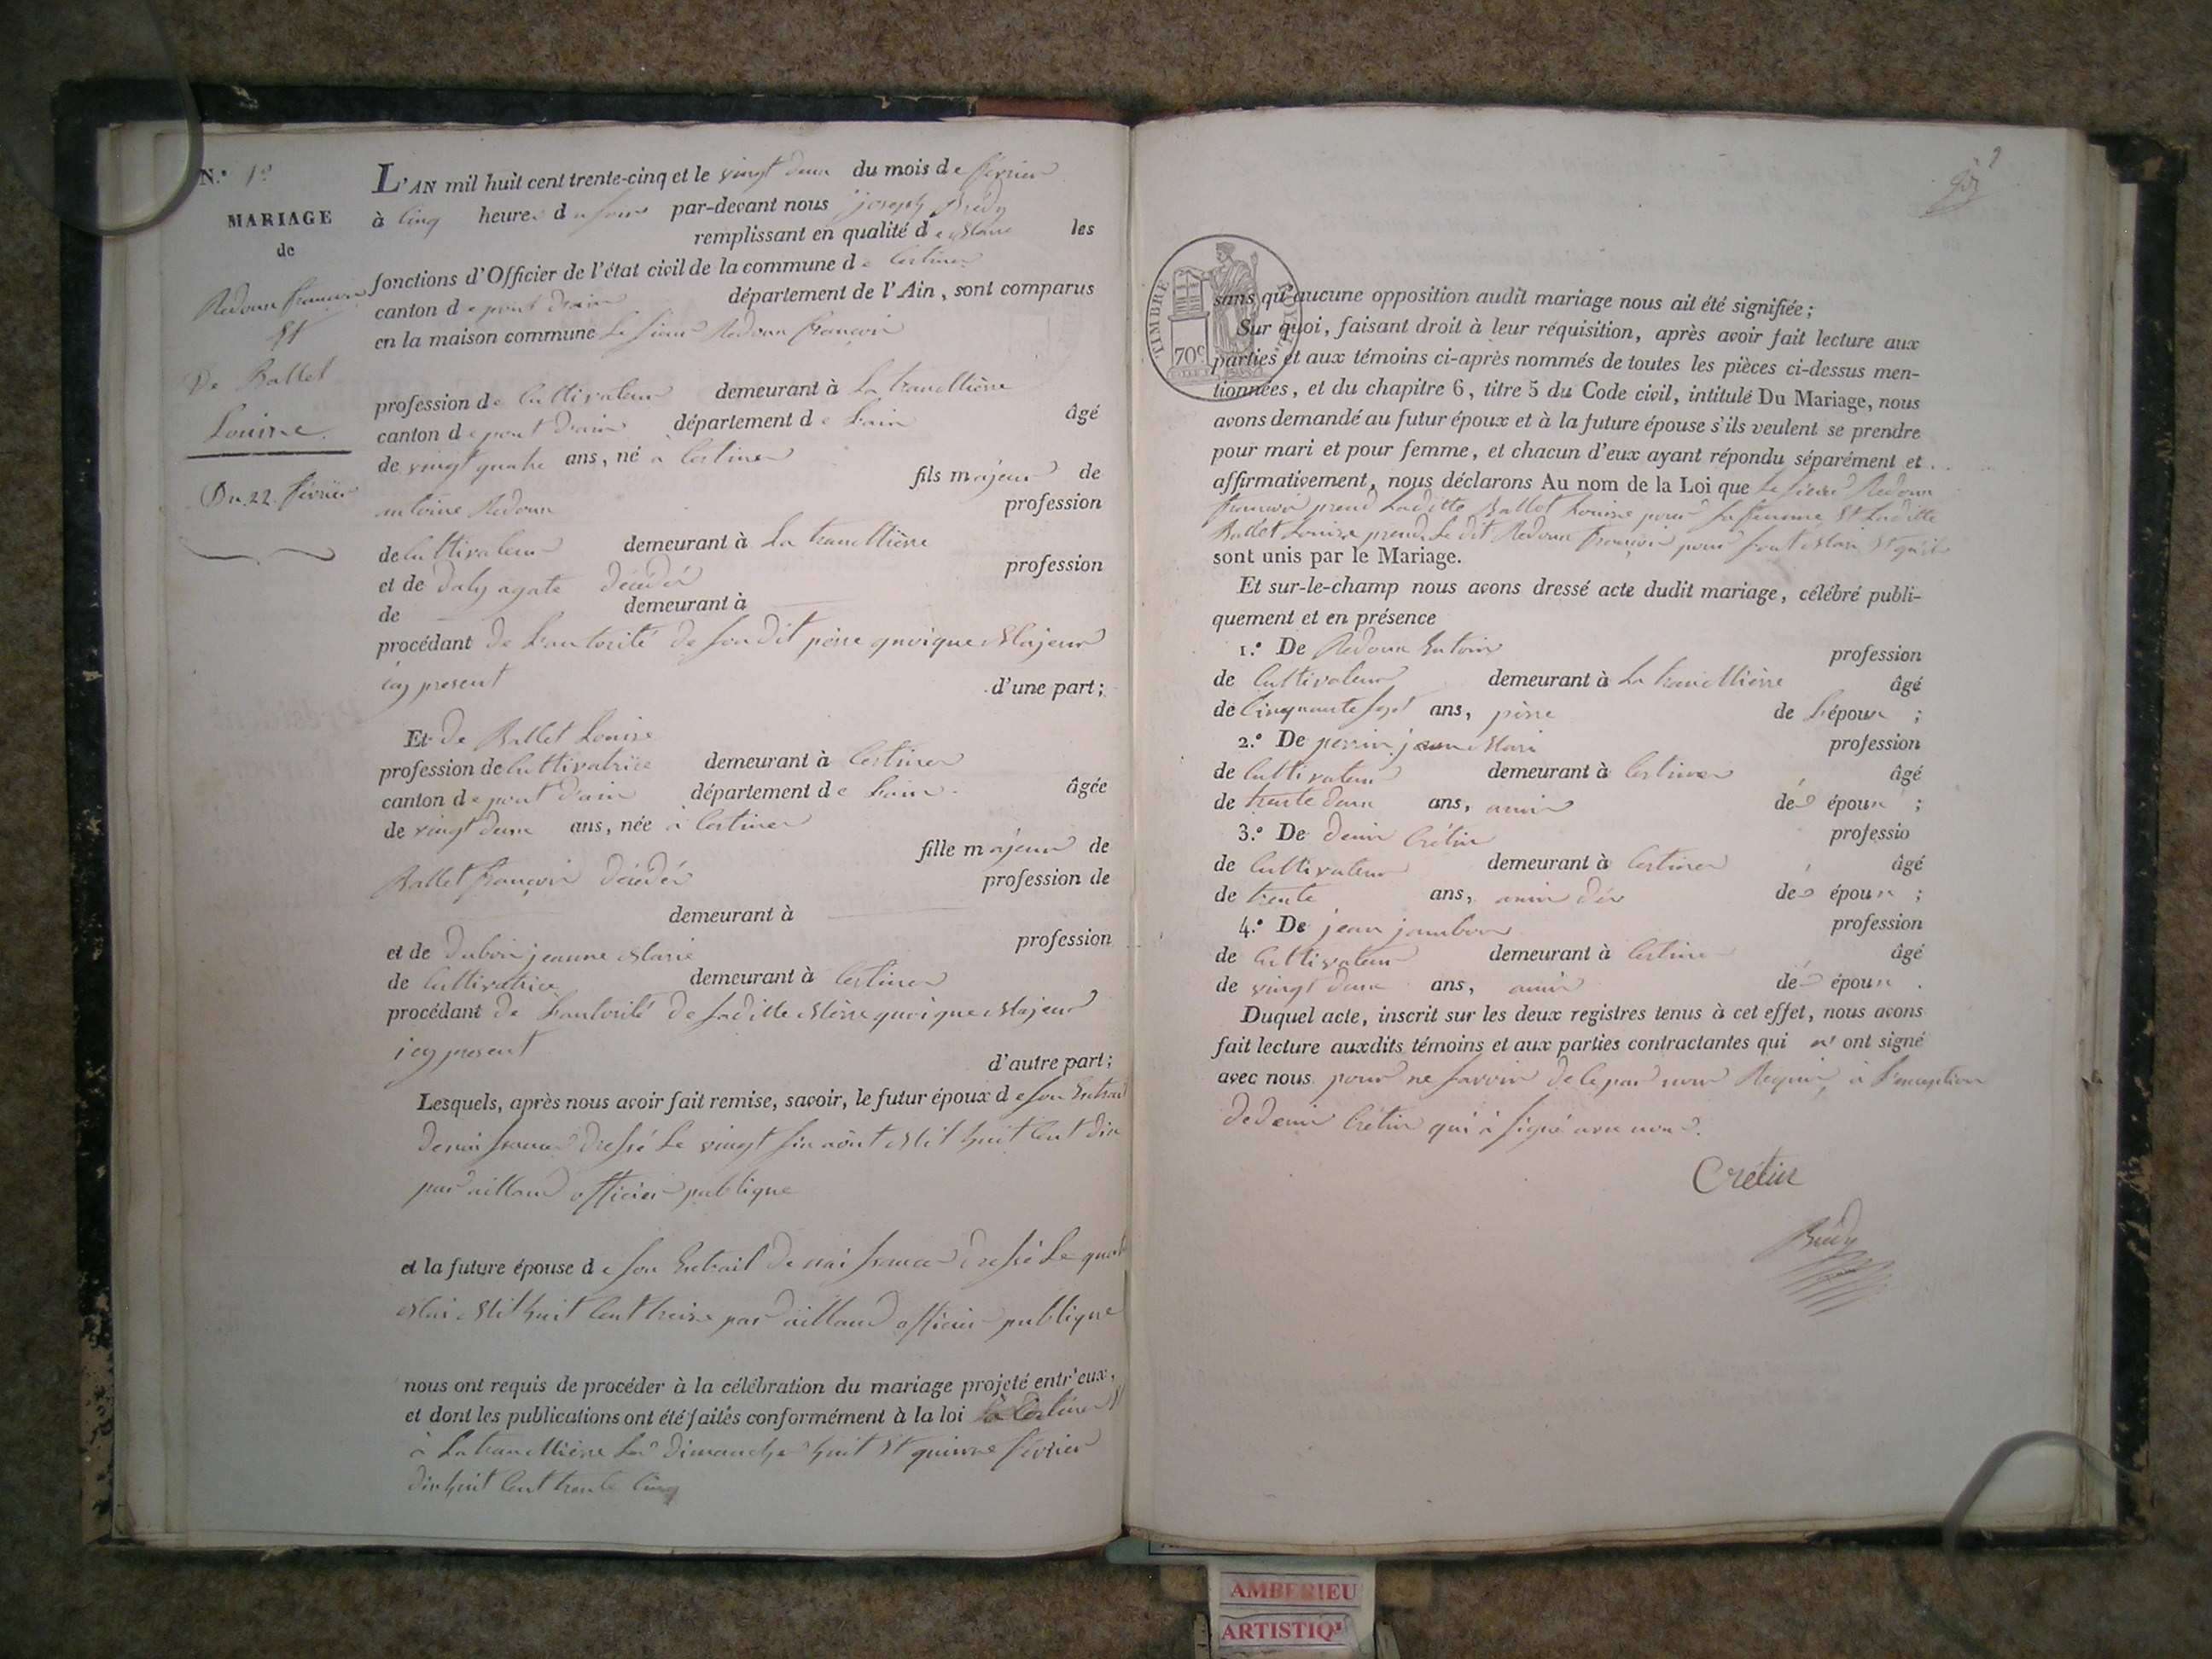 N.º 1º
MARIAGE
de
Redoux françois
Et
De Ballet
Louise
Du 22 février
L'AN mil huit cent trente-cinq et le vingt deux du mois de février
à cinq heures du soir par-devant nous joseph Brédy
remplissant en qualité de Maire les
fonctions d'Officier de l'état civil de la commune de Certines
canton de pont d'ain département de l'Ain, sont comparus
en la maison commune Le sieur Redoux françois
profession de Cultivateur demeurant à La tranclière
canton de pont d'ain département de L'ain âgé
de vingt quatre ans, né à Certines
fils majeur de
antoine Redoux profession
de Cultivateur demeurant à La tranclière
et de Daly agate décédé profession
de demeurant à
procédant de L'autorité de son dit père quoique Majeur
icy present d'une part;
Et De Ballet Louise
profession de Cultivatrice demeurant à Certines
canton de pont d'ain département de L'ain âgée
de vingt deux ans, née à Certines
fille majeur de
Ballet françois décédé profession de
demeurant à
et de Dubois jeanne Marie profession
de Cultivatrice demeurant à Certines
procédant de L'autorité de saditte Mère quoique Majeur
icy present d'autre part;
Lesquels, après nous avoir fait remise, savoir, le futur époux de son Extrait
de naissance dressé Le vingt six août Mil huit Cent dix
par aillaud officier publique
et la future épouse de son Extrait de naissance dressé Le quatre
Mai Mil huit Cent treize par aillaud officier publique
nous ont requis de procéder à la célébration du mariage projeté entr'eux,
et dont les publications ont été faites conformément à la loi à Certines Et
à La tranclière Les dimanche huit Et quinze février
dix huit Cent trente cinq
TIMBRE ROYAL
70c
sans qu'aucune opposition audit mariage nous ait été signifiée;
Sur quoi, faisant droit à leur réquisition, après avoir fait lecture aux
parties et aux témoins ci-après nommés de toutes les pièces ci-dessus men-
tionnées, et du chapitre 6, titre 5 du Code civil, intitulé Du Mariage, nous
avons demandé au futur époux et à la future épouse s'ils veulent se prendre
pour mari et pour femme, et chacun d'eux ayant répondu séparément et
affirmativement, nous déclarons Au nom de la Loi que Le sieur Redoux
françois prend Laditte Ballet Louise pour sa femme Et Laditte
Ballet Louise prend Le dit Redoux françois pour sont Mari Et qu'ils
sont unis par le Mariage.
Et sur-le-champ nous avons dressé acte dudit mariage, célébré publi-
quement et en présence
1.º De Redoux Entoin profession
de Cultivateur demeurant à La tranclière âgé
de Cinquante sept ans, père de L'époux ;
2.º De perrin jean Mari profession
de Cultivateur demeurant à Certines âgé
de trente deux ans, amis dés époux ;
3.º De denis Crétin professio
de Cultivateur demeurant à Certines âgé
de trente ans, amis des dés époux ;
4.º De jean jambon profession
de Cultivateur demeurant à Certines âgé
de vingt deux ans, amis dés époux .
Duquel acte, inscrit sur les deux registres tenus à cet effet, nous avons
fait lecture auxdits témoins et aux parties contractantes qui n' ont signé
avec nous pour ne savoir de ce par nous Requis, à L'exception
de denis Crétin qui à signé avec nous.
Crétin
Brédy
AMBERIEU
ARTISTIQ